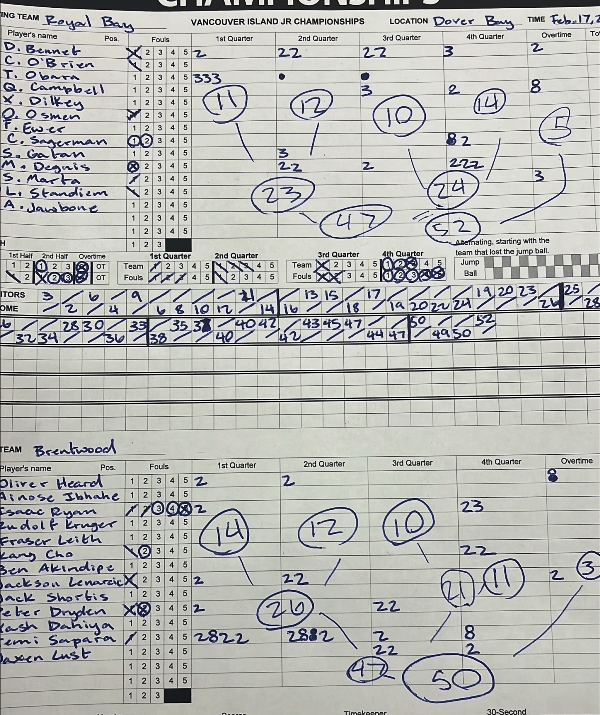 CHAMPIONSHIPS
ING TEAM Royal Bay VANCOUVER ISLAND JR CHAMPIONSHIPS LOCATION Dover Bay TIME Feb. 17, 2
Player's name Pos. Fouls 1st Quarter 2nd Quarter 3rd Quarter 4th Quarter Overtime
D. Bennet 1 2 3 4 5 2 22 22 3 2
C. O'Brien 1 2 3 4 5
T. Obara 1 2 3 4 5 333
Q. Campbell 1 2 3 4 5 3 2 8
X. Dilkey 1 2 3 4 5 11 12 10 14
O. Osmen 1 2 3 4 5 5
F. Ewer 1 2 3 4 5
C. Sagerman 1 2 3 4 5 8 2
S. Gatan 1 2 3 4 5 3
M. Dennis 1 2 3 4 5 22 2 222
S. Marta 1 2 3 4 5 3
L. Standiem 1 2 3 4 5 23 24
A. Jawbone 1 2 3 4 5
1 2 3 4 5 47 52
1 2 3
1st Half 2nd Half Overtime 1st Quarter 2nd Quarter 3rd Quarter 4th Quarter Alternating, starting with the
team that lost the jump ball.
OT Team 1 2 3 4 5 Team Jump
OT Fouls Fouls Ball
ITORS 3 6 9 11 13 15 17 19 20 23 25
OME 2 4 6 8 10 12 14 16 18 19 20 22 24 26 28
28 30 33 35 38 40 42 43 45 47 50 52
32 34 36 38 40 42 44 47 49 50
TEAM Brentwood
Player's name Pos. Fouls 1st Quarter 2nd Quarter 3rd Quarter 4th Quarter Overtime
Oliver Heard 1 2 3 4 5 2 2 8
Ainose Ibhahe 1 2 3 4 5
Isaac Ryan 3 4 5 2 23
Rudolf Kruger 1 2 3 4 5 14 12 10
Fraser Leith 1 2 3 4 5
Kang Cho 2 3 4 5 22
Ben Akindipe 1 2 3 4 5
Jackson Lenarcic 2 3 4 5 2 22 21 11 2 3
Jack Shortis 1 2 3 4 5
Peter Dryden 3 4 5 2 26 22
Kash Dahiya 1 2 3 4 5
emi Sapara 2 3 4 5 2822 2882 2 8
Lust 1 2 3 4 5 22 2
1 2 3 4 5 47 50
1 2 3
Timekeeper 30-Second